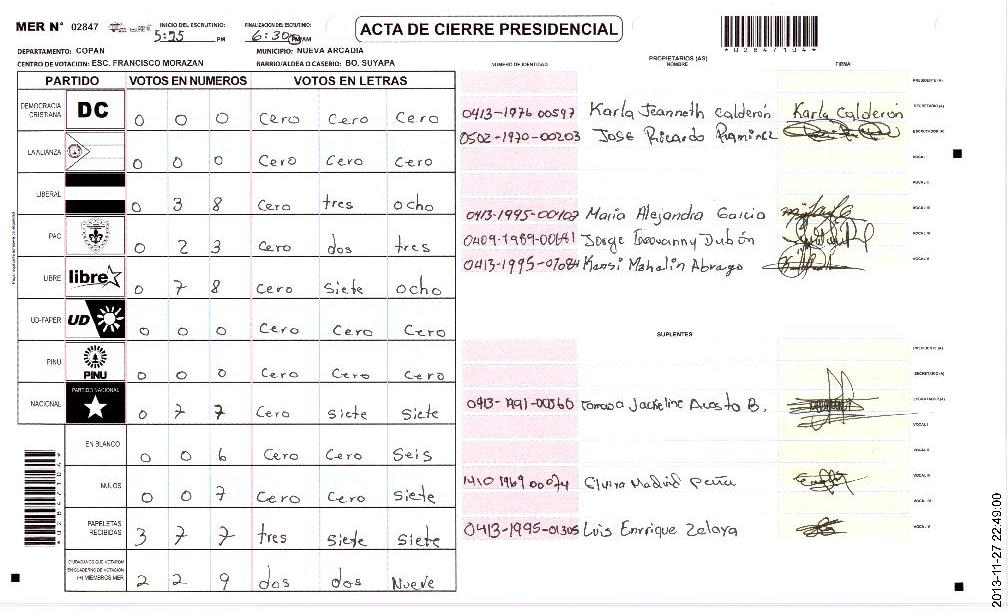 MER N° 02847 INICIO DEL ESCRUTINIO: 5:25 PM FINALIZACION DEL ESCRUTINIO: 6:30 PM/AM
ACTA DE CIERRE PRESIDENCIAL
DEPARTAMENTO: COPAN MUNICIPIO: NUEVA ARCADIA
CENTRO DE VOTACION: ESC. FRANCISCO MORAZAN BARRIO/ALDEA O CASERIO: BO. SUYAPA
PARTIDO VOTOS EN NUMEROS VOTOS EN LETRAS
DEMOCRACIA CRISTIANA DC 0 0 0 Cero Cero Cero
LA ALIANZA 0 0 0 Cero Cero Cero
LIBERAL 0 3 8 Cero tres ocho
PAC 0 2 3 Cero dos tres
LIBRE libre 0 7 8 Cero Siete ocho
UD-FAPER UD 0 0 0 Cero Cero Cero
PINU PINU 0 0 0 Cero Cero Cero
NACIONAL PARTIDO NACIONAL 0 7 7 Cero Siete Siete
EN BLANCO 0 0 6 Cero Cero Seis
NULOS 0 0 7 Cero Cero Siete
PAPELETAS RECIBIDAS 3 7 7 tres Siete Siete
CIUDADANOS QUE VOTARON EN CUADERNO DE VOTACION (+) MIEMBROS MER 2 2 9 dos dos Nueve
*02847104*
NUMERO DE IDENTIDAD PROPIETARIOS (AS) NOMBRE FIRMA
PRESIDENTE (A)
0413-1976 00597 Karla Jeanneth Calderón Karla Calderón SECRETARIO (A)
0502-1970-00203 Jose Ricardo Ramirez ESCRUTADOR (A)
VOCAL I
VOCAL II
Maria Alejandra Garcia VOCAL III
Jorge Dubón
0413-1995- VOCAL V
SUPLENTES
PRESIDENTE (A)
SECRETARIO (A)
Jackeline B. ESCRUTADOR (A)
VOCAL I
VOCAL II
Elvira Madrid Peña VOCAL III
VOCAL IV
0413-1995-01305 Luis Enrrique Zelaya VOCAL V
2013-11-27 22:49:00